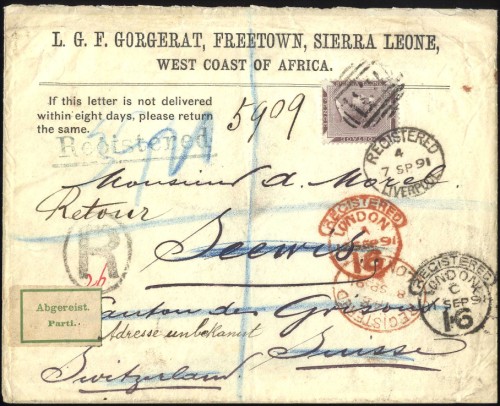 L. G. F. GORGERAT, FREETOWN, SIERRA LEONE,
WEST COAST OF AFRICA.
If this letter is not delivered
within eight days, please return
the same.
5909
Registered
REGISTERED
4
7 SP 91
LIVERPOOL
Monsieur A. Morel
Retour
Seewis
R
REGISTERED
LONDON
SEP 91
16
REGISTERED
REGISTERED
LONDON
C
SEP 91
16
Abgereist.
Parti.
Canton des Grisons
Adresse unbekannt
Suisse
Switzerland